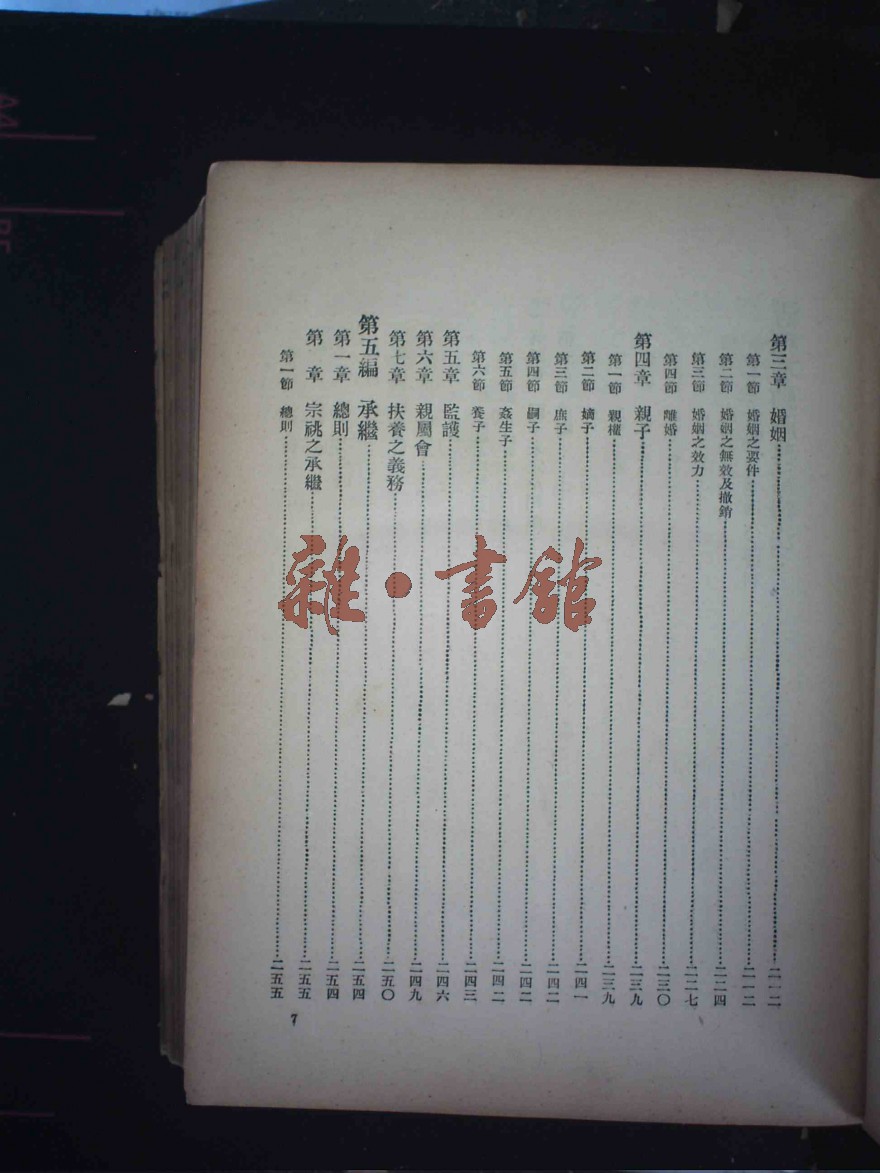 第三章　婚姻……二一二
第一節　婚姻之要件……二一二
第二節　婚姻之無效及撤銷……二二四
第三節　婚姻之效力……二二七
第四節　離婚……二三〇
第四章　親子……二三九
第一節　親權……二三九
第二節　嫡子……二四一
第三節　庶子……二四二
第四節　嗣子……二四二
第五節　姦生子……二四二
第六節　養子……二四三
第五章　監護……二四六
第六章　親屬會……二四九
第七章　扶養之義務……二五〇
第五編　承繼……二五四
第一章　總則……二五四
第　章　宗祧之承繼……二五五
第一節　總則……二五五
7
雜·書館